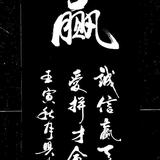 赢
诚信赢天
爱拼才会
壬寅秋月兴